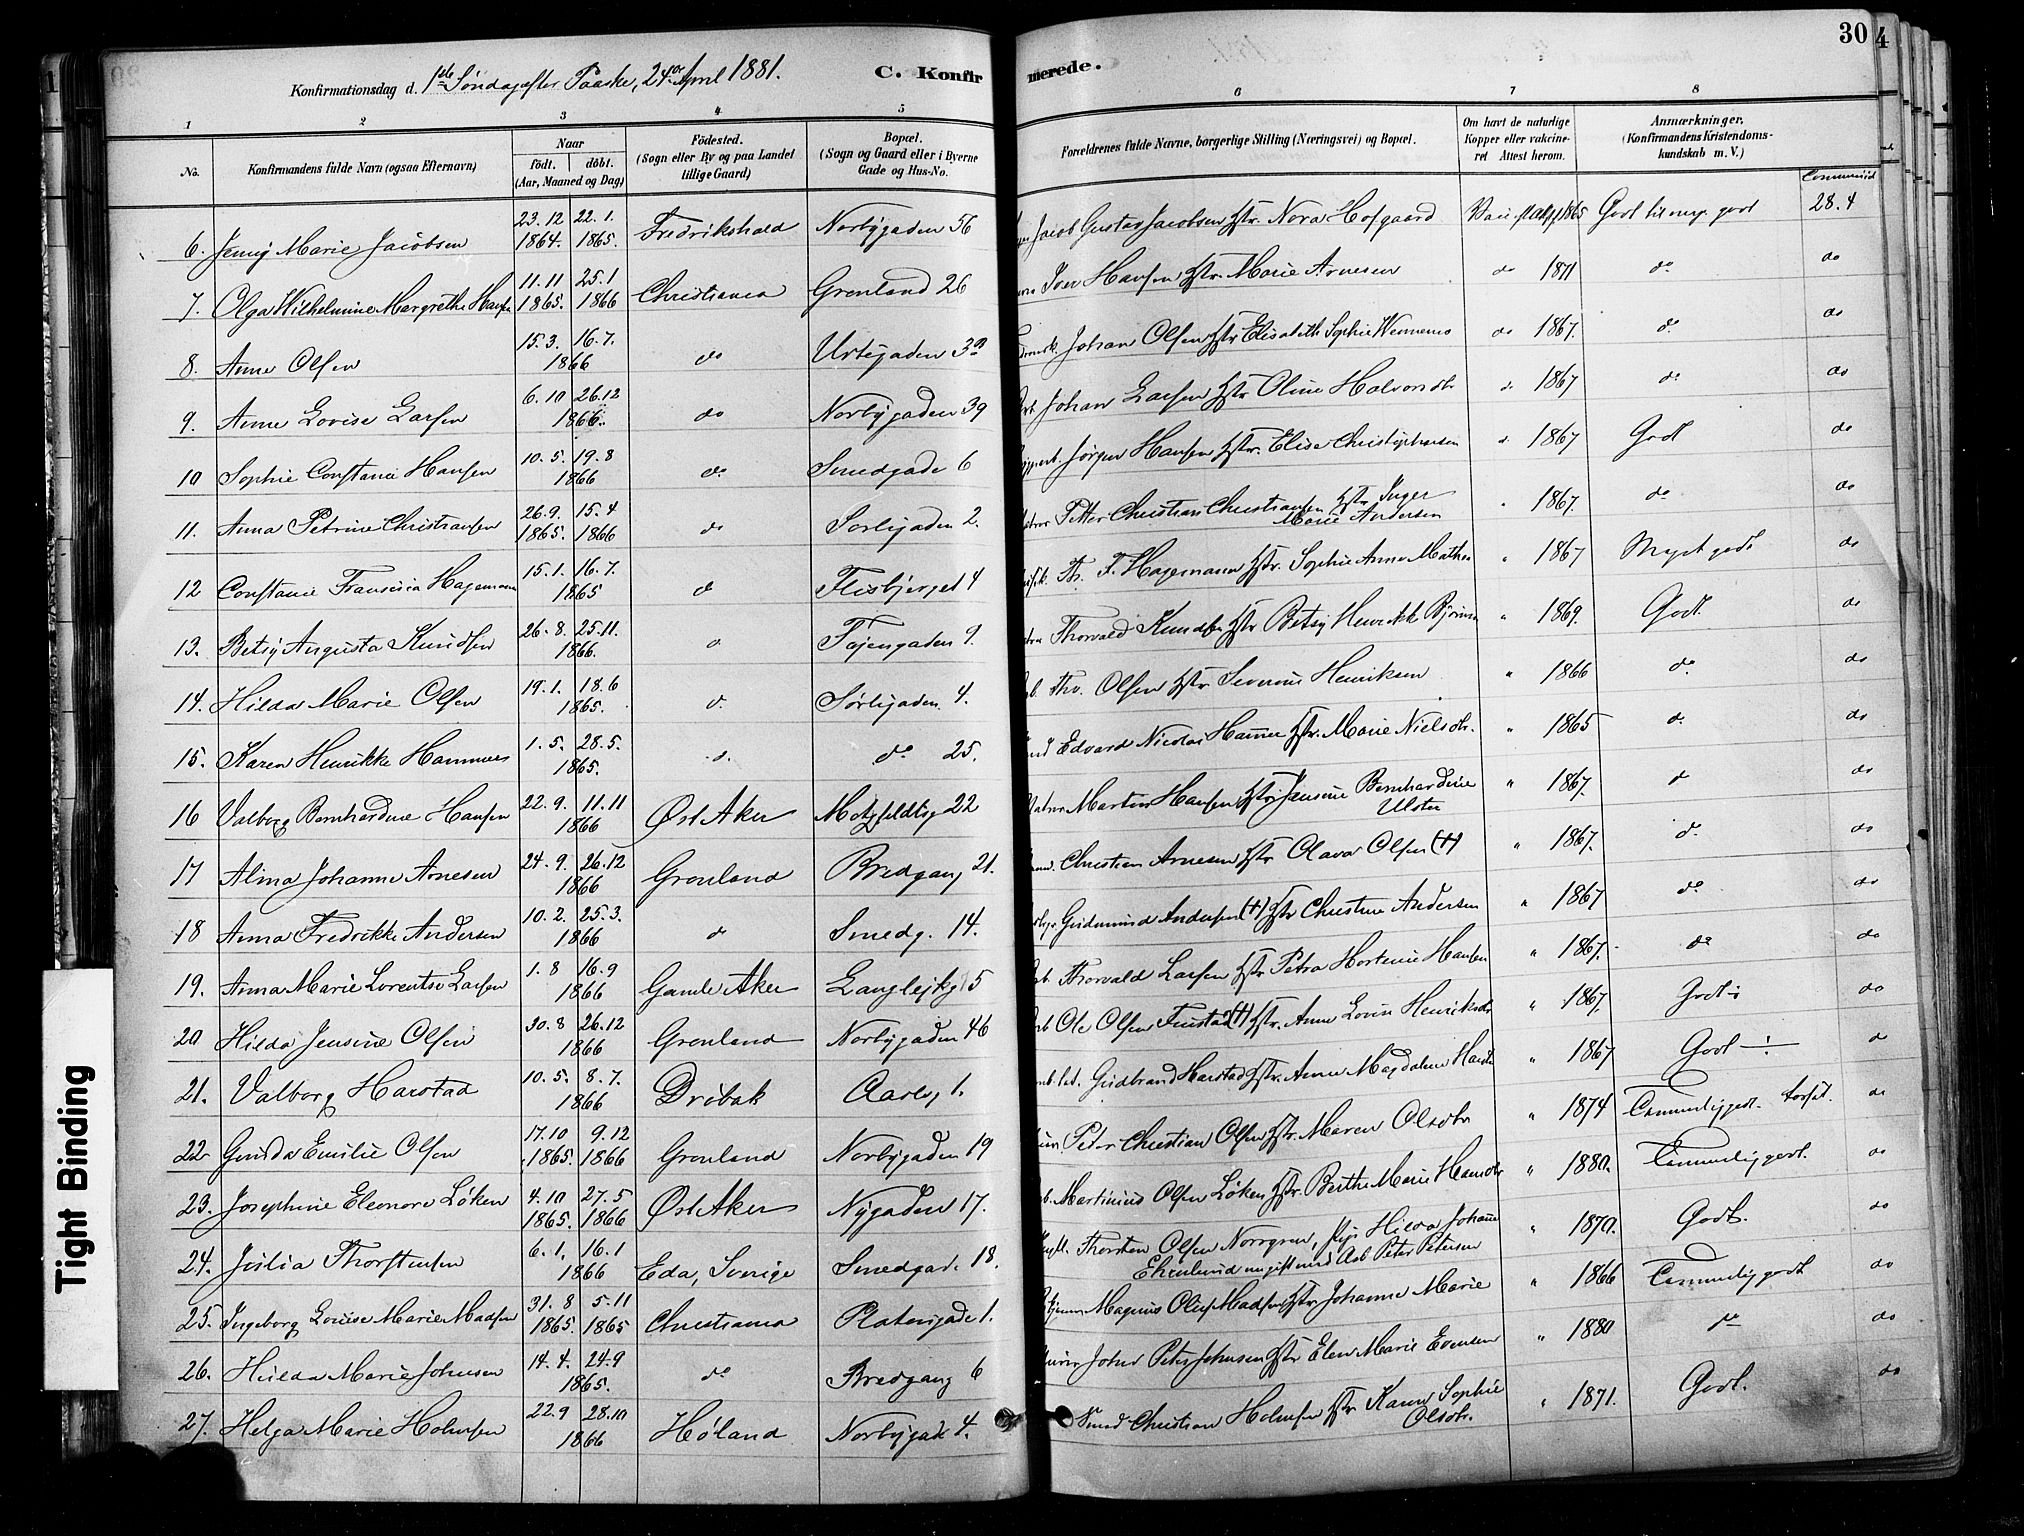 30
4
Konfirmationsdag d. 1ste Søndag efter Paaske, 24de April 1881.
C. Konfirmerede.
1 2 3 4 5 6 7 8
No.
Konfirmandens fulde Navn (ogsaa Efternavn)
Naar
Födt. döbt.
(Aar, Maaned og Dag)
Födested.
(Sogn eller By og paa Landet
tillige Gaard)
Bopæl.
(Sogn og Gaard eller i Byerne
Gade og Hus-No.
Forældrenes fulde Navne, borgerlige Stilling (Næringsvei) og Bopæl.
Om havt de naturlige
Kopper eller vakcine-
ret Attest herom.
Anmærkninger,
(Konfirmandens Kristendoms-
kundskab m. V.)
6. Jenny Marie Jacobsen 23.12 1864. 22.1. 1865. Fredrikshald Norbygaden 56 Jacob Gustav Jacobsen Hstr. Nora Hofgaard 1865 Godt til meg. godt 28.4
7. Olga Wilhelmine Margrethe Hansen 11.11 1865. 25.1 1866 Christiania Grønland 26 Iver Hansen Hstr. Marie Arnesen do 1871 do do
8. Anne Olsen 15.3. 16.7. 1866 do Urtegaden 39 Johan Olsen Hstr Elisabeth Sophie do 1867. do do
9. Anne Lovise Larsen 6.10 26.12 1866. do Norbygaden 39 Johan Larsen Hstr Oline Halvorsdtr do 1867 do do
10 Sophie Constance Hansen 10.5. 19.8 1866 do Smedgade 6 Jørgen Hansen Hstr. Elise Christophersen 1867 Godt do
11. Anna Petrine Christiansen 26.9. 1865. 15.4 1866 do Sørligaden 2. Petter Christian Christiansen Hstr Inger
Marie Andersen " 1867. do do
12 Constance Francisca Hagemann 15.1. 16.7. 1865 do Flisbjerget 4 Th. F. Hagemann Hstr. Sophie Anne " 1867 Meget godt do
13. Betsy Augusta Knudsen 26.8. 25.11. 1866. do Tøiengaden 9. Thorvald Knudsen Hstr Betsy Henrikke " 1869. Godt. do
14. Hilda Marie Olsen 19.1. 18.6 1865. do Sørligaden 4. Thv. Olsen Hstr Severine Henriksen " 1866 do do
15. Karen Henrikke Hammer 1.5. 28.5. 1865. do do 25. Edvard Nicolai Hammer Hstr. Marie Nielsdtr. " 1865 do do
16 Valborg Bernhardine Hansen 22.9. 11.11 1866 Øst Aker Motzfeldtsg 22 Martin Hansen Hstr Jensine Bernhardine
" 1867. do do
17 Alma Johanne Arnesen 24.9. 26.12 1866 Grønland Bredgang 21. Christian Arnesen Hstr Olava Olsen (†) " 1867. do do
18 Anna Fredrikke Andersen 10.2. 25.3. 1866 do Smedg. 14. Gudmund Andersen (†) Hstr Christine Andersen " 1867 do do
19. Anna Marie Lorentse Larsen 1.8 16.9 1866 Gamle Aker Langlejkg 5 Thorvald Larsen Hstr Petra Hortense Hansen " 1867. do do
20 Hilda Jensine Olsen 30.8 26.12 1866 Grønland Norbygaden 46 Ole Olsen (†) Hstr. Anne Lovise Henriksdtr " 1867. Godt do
21. Valborg Harstad 10.5. 8.7. 1866 Drøbak Aakebg 1. Gudbrand Harstad Hstr. Anne Magdalene " 1867 Godt do
22. Gunda Emilie Olsen 17.10 1865. 9.12 1866 Grønland Norbygaden 19 Peter Christian Olsen Hstr. Maren Olsdtr " 1874 Temmelig godt. do
23. Josephine Eleonore Løken 4.10 1865. 27.5 1866 Øst Aker Nygaden 17. Martinius Olsen Løken Hstr. Berthe Marie Hansdtr " 1880. Temmelig godt. do
24. Julia Thorstensen 6.1. 16.1 1866 Eda, Sverige Smedgad. 18. Thorsten Olsen Norrgren, Hilda Johanne
nu gift med Arb Peter Petersen " 1870. Godt. do
25. Ingeborg Louise Marie Madsen 31.8 1865. 5.11 1865 Christiania Platousgade 1. Magnus Oluf Madsen Hstr. Johanne Marie " 1866 Temmelig godt do
26. Hilda Marie Johnsen 14.4. 24.9 1865. do Bredgang 6 Peter Johnsen Hstr Elen Marie Evensen " 1880 do do
27. Helga Marie Holmsen 22.9 28.10 1866 Høland Norbygade 4. Smed Christian Holmsen Hstr Karen Sophie
Olsdtr. " 1871. Godt. do
Tight Binding